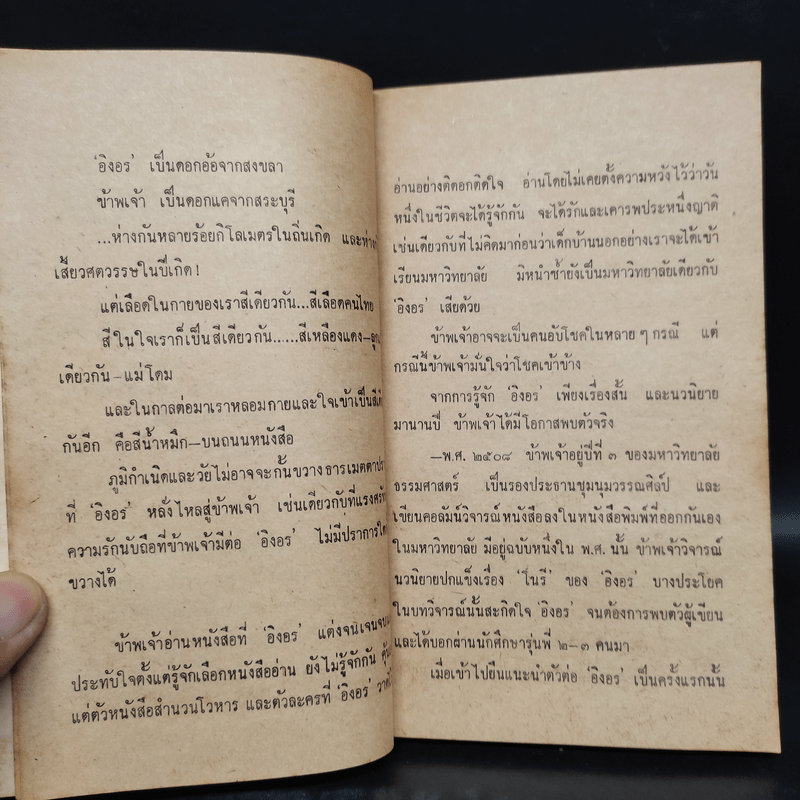 'อิงอร' เป็นดอกอ้อจากสงขลา
ข้าพเจ้า เป็นดอกแคจากสระบุรี
...ห่างกันหลายร้อยกิโลเมตรในถิ่นเกิด และห่าง
เสี้ยวศตวรรษในปีเกิด!
แต่เลือดในกายของเราสีเดียวกัน...สีเลือดคนไทย
สีในใจเราก็เป็นสีเดียวกัน......สีเหลืองแดง—
เดียวกัน—แม่โดม
และในกาลต่อมาเราหลอมกายและใจเข้าเป็นสี
กันอีก คือสีน้ำหมึก—บนถนนหนังสือ
ภูมิกำเนิดและวัยไม่อาจจะกั้นขวางธารเมตตา
ที่ 'อิงอร' หลั่งไหลสู่ข้าพเจ้า เช่นเดียวกับที่แรงศรัท
ความรักนับถือที่ข้าพเจ้ามีต่อ 'อิงอร' ไม่มีปราการใด
ขวางได้
ข้าพเจ้าอ่านหนังสือที่ 'อิงอร' แต่งจนเจนจบ
ประทับใจตั้งแต่รู้จักเลือกหนังสืออ่าน ยังไม่รู้จักกัน
แต่ตัวหนังสือสำนวนโวหาร และตัวละครที่ 'อิงอร'
อ่านอย่างติดอกติดใจ อ่านโดยไม่เคยตั้งความหวังไว้ว่าวัน
หนึ่งในชีวิตจะได้รู้จักกัน จะได้รักและเคารพประหนึ่งญาติ
เช่นเดียวกับที่ไม่คิดมาก่อนว่าเด็กบ้านนอกอย่างเราจะได้เข้า
เรียนมหาวิทยาลัย มิหนำซ้ำยังเป็นมหาวิทยาลัยเดียวกับ
'อิงอร' เสียด้วย
ข้าพเจ้าอาจจะเป็นคนอับโชคในหลาย ๆ กรณี แต่
กรณีนี้ข้าพเจ้ามั่นใจว่าโชคเข้าข้าง
จากการรู้จัก 'อิงอร' เพียงเรื่องสั้น และนวนิยาย
มานานปี ข้าพเจ้าได้มีโอกาสพบตัวจริง
—พ.ศ. ๒๕๐๘ ข้าพเจ้าอยู่ปีที่ ๓ ของมหาวิทยาลัย
ธรรมศาสตร์ เป็นรองประธานชุมนุมวรรณศิลป์ และ
เขียนคอลัมน์วิจารณ์หนังสือลงในหนังสือพิมพ์ที่ออกกันเอง
ในมหาวิทยาลัย มีอยู่ฉบับหนึ่งใน พ.ศ. นั้น ข้าพเจ้าวิจารณ์
นวนิยายปกแข็งเรื่อง 'โนรี' ของ 'อิงอร' บางประโยค
ในบทวิจารณ์นั้นสะกิดใจ 'อิงอร' จนต้องการพบตัวผู้เขียน
และได้บอกผ่านนักศึกษารุ่นพี่ ๒—๓ คนมา
เมื่อเข้าไปยืนแนะนำตัวต่อ 'อิงอร' เป็นครั้งแรกนั้น